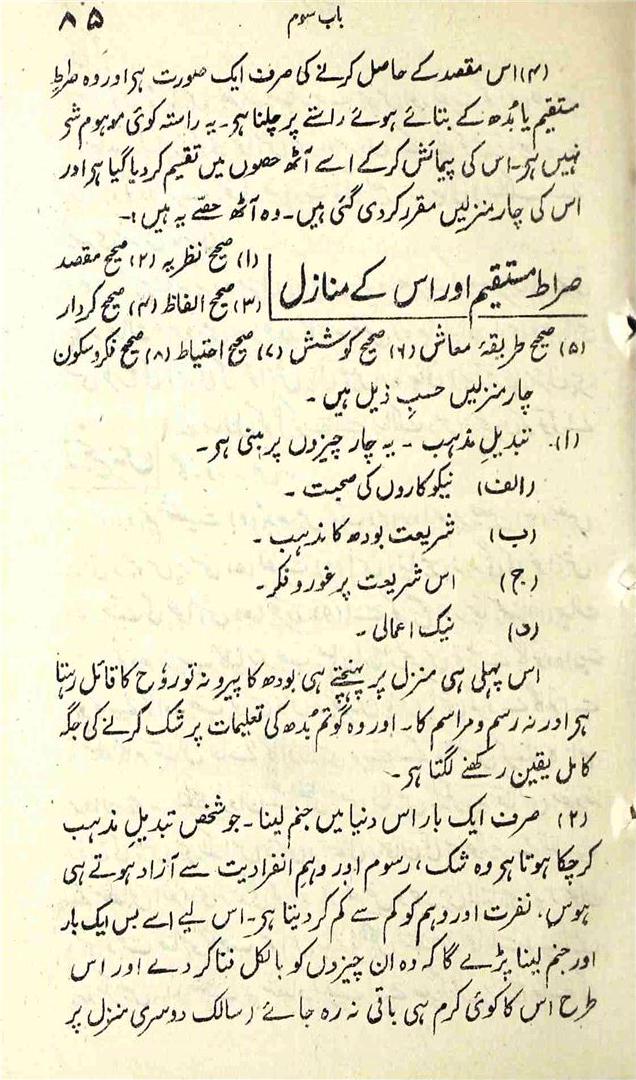 باب سوم
۸۵
(۴) اس مقصد کے حاصل کرنے کی صرف ایک صورت ہی اور وہ صراطِ
مستقیم یا بُدھ کے بتائے ہوئے راستے پر چلنا ہی۔ یہ راستہ کوئی موہوم شی
نہیں ہی۔ اس کی پیمائش کرکے اسے آٹھ حصوں میں تقسیم کردیا گیا ہی اور
اس کی چار منزلیں مقرر کردی گئی ہیں۔ وہ آٹھ حصّے یہ ہیں:-
صراط مستقیم اور اس کے منازل
(۱) صحیح نظریہ (۲) صحیح مقصد
(۳) صحیح الفاظ (۴) صحیح کردار
(۵) صحیح طریقۂ معاش (۶) صحیح کوشش (۷) صحیح احتیاط (۸) صحیح فکر و سکون
چار منزلیں حسبِ ذیل ہیں۔
(۱)۔ تبدیلِ مذہب ۔ یہ چار چیزوں پر مبنی ہی۔
(الف) نیکوکاروں کی صحبت ۔
(ب) شریعت بودھ کا مذہب ۔
(ج) اس شریعت پر غور و فکر۔
(د) نیک اعمالی ۔
اس پہلی ہی منزل پر پہنچتے ہی بودھ کا پیرو نہ تو رُوح کا قائل رہتا
ہی اور نہ رسم و مراسم کا۔ اور وہ گوتم بُدھ کی تعلیمات پر شک کرنے کی جگہ
کامل یقین رکھنے لگتا ہی۔
(۲) صرف ایک بار اس دنیا میں جنم لینا ۔ جو شخص تبدیلِ مذہب
کرچکا ہوتا ہی وہ شک، رسوم اور وہمِ انفرادیت سے آزاد ہوتے ہی
ہوس، نفرت اور وہم کو کم سے کم کر دیتا ہی۔ اس لیے اسے بس ایک بار
اور جنم لینا پڑے گا کہ وہ ان چیزوں کو بالکل فنا کر دے اور اس
طرح اس کا کوئی کرم ہی باقی نہ رہ جائے (سالک دوسری منزل پر